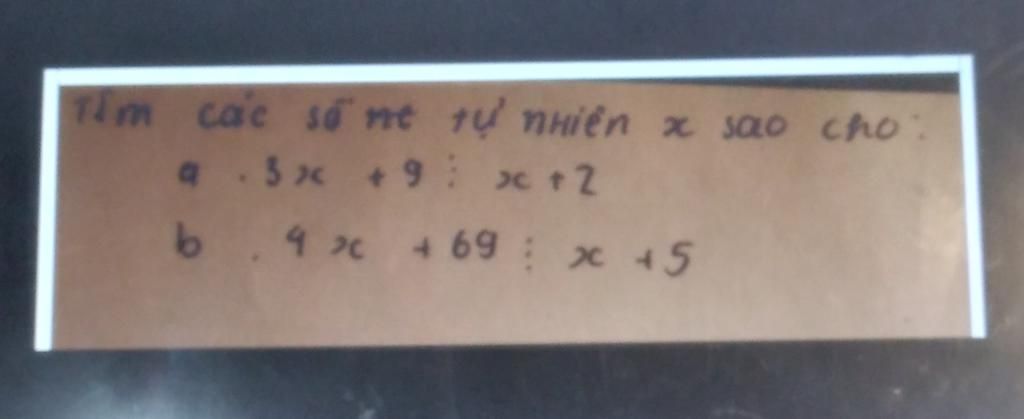 Tìm các số ne tự nhiên x sao cho:
a. 3x + 9 ⋮ x + 2
b. 4x + 69 ⋮ x + 5